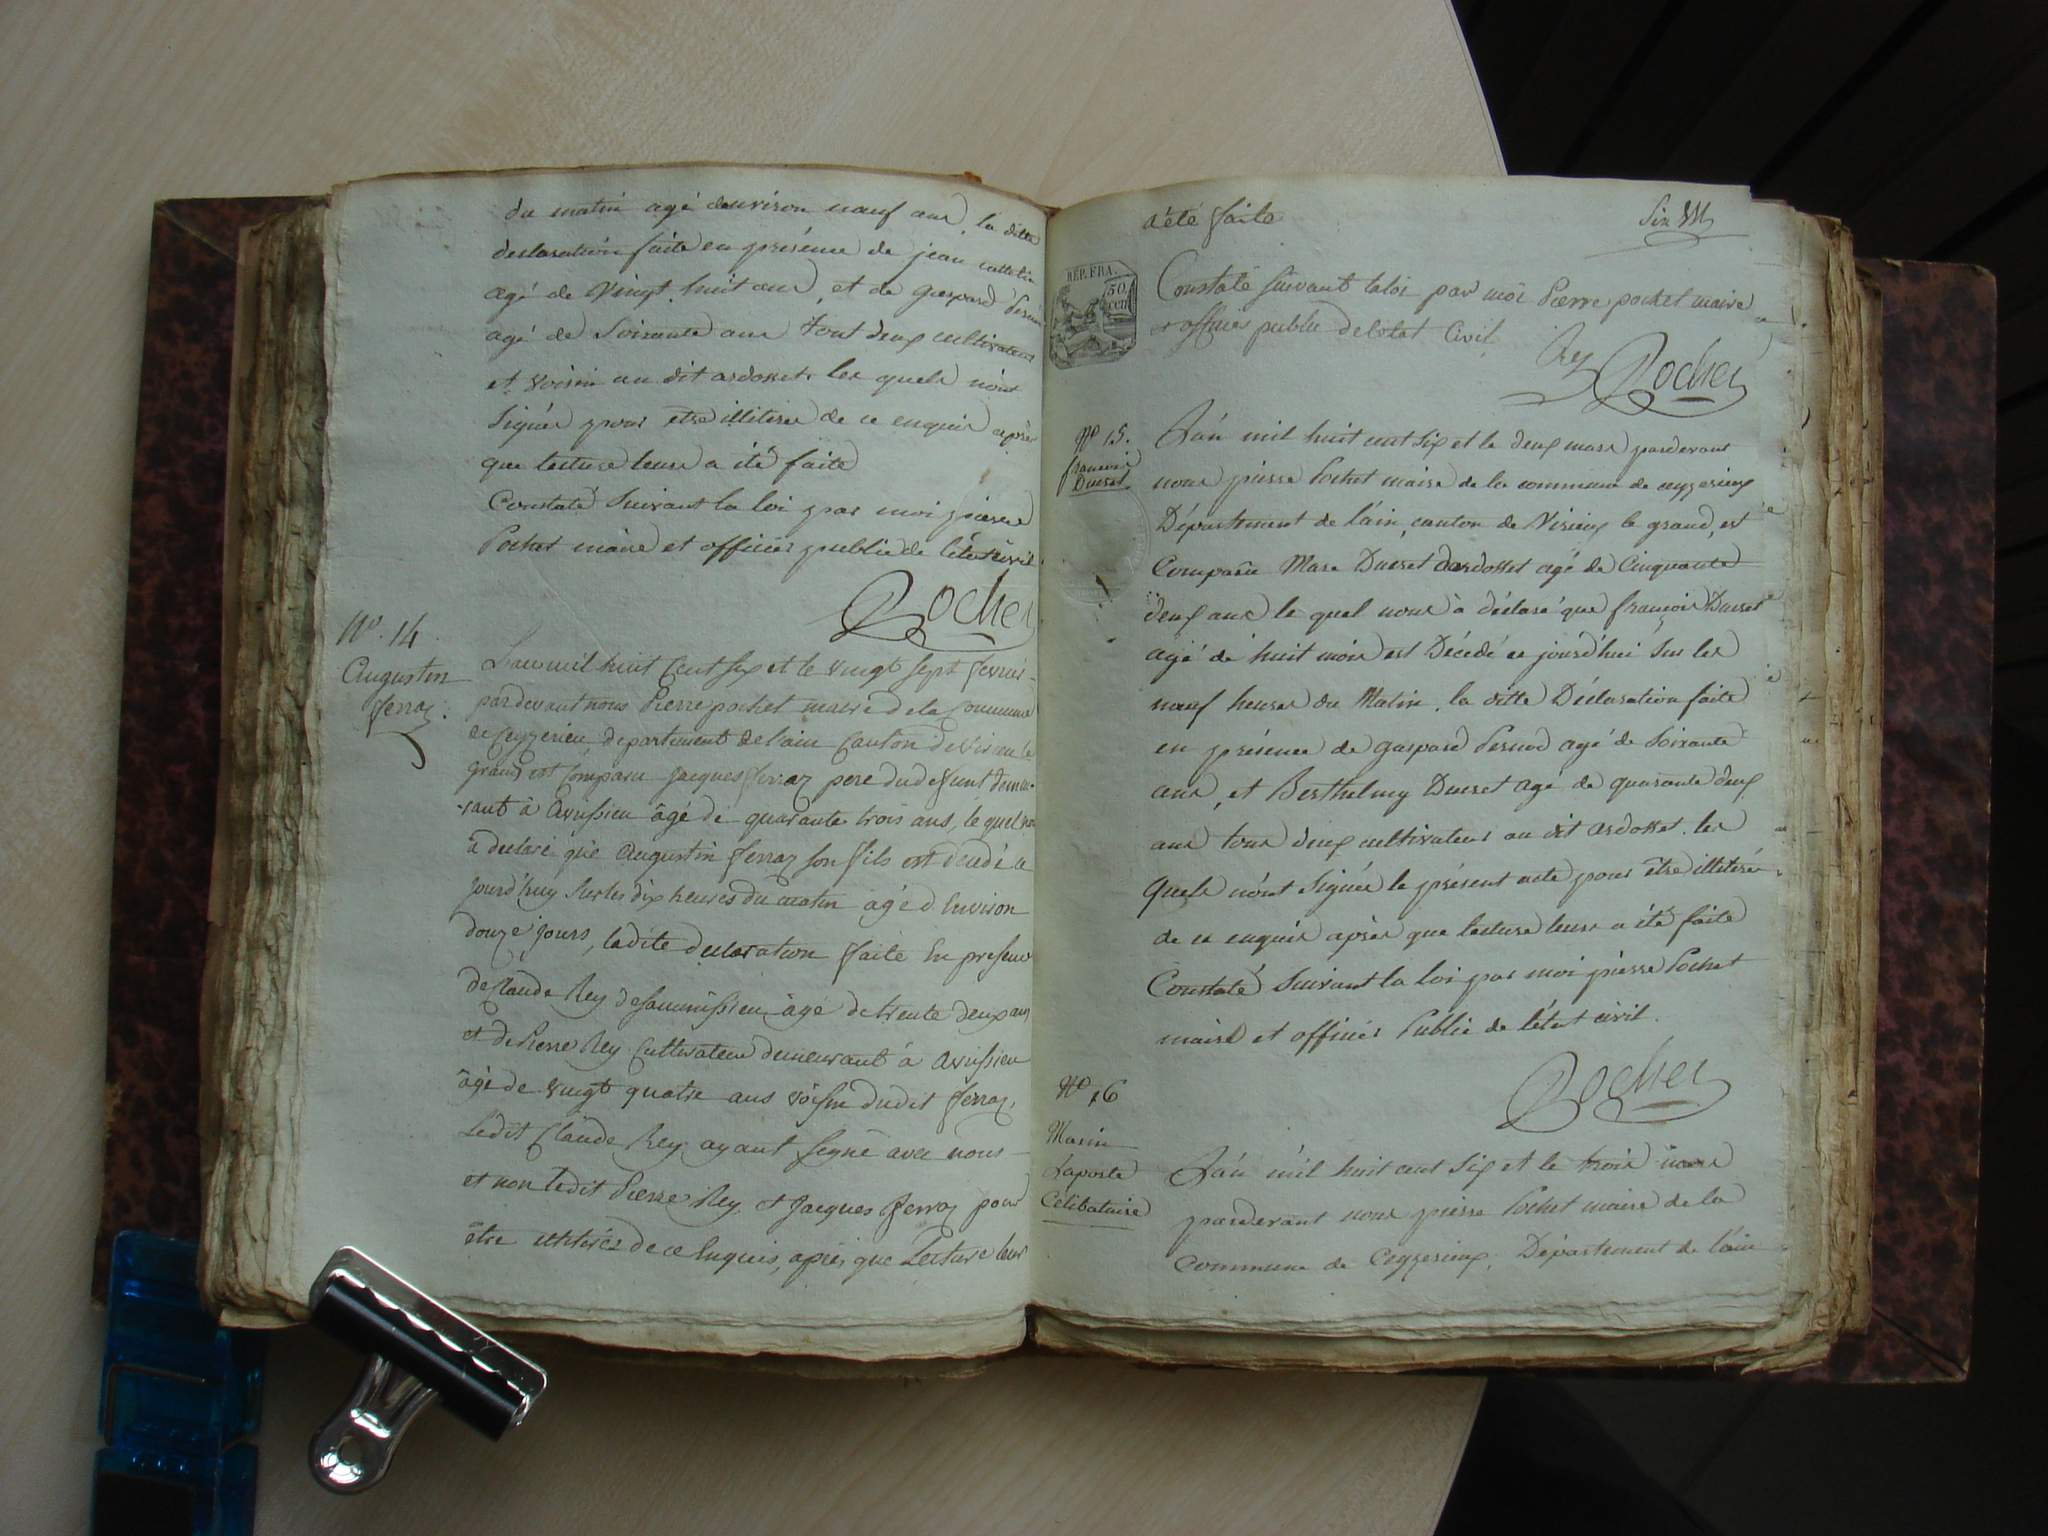 du matin agé denviron nœuf ans, la ditte
declaration faite en présence de jean
agé de Vingt huit ans, et de gaspard Pernod
agé de Soixante ans tout deux cultivateurs
et voisin au dit ardosset lex quels n'ont
Signés pour etre illiterés de ce enquis après
que lecture leurs a été faite
Constaté Suivant la loi par moi pierre
Pochet maire et officier public de l'état civil
Pochet
No. 14
Augustin
ferraz.
L'an mil huit Cent six et le vingt sept fevrier
pardevant nous Pierre pochet maire de la Commune
de Ceyzerieu, departement de l'ain Canton de Virieu le
grand est Comparu Jacques ferraz pere du defunt demeu-
rant à Avrissieu âgé de quarante trois ans, le quel
a declaré que Augustin ferraz son fils est décédé a
jourd'huy sur les dix heures du matin agé d'Environ
douze jours, ladite declaration faite En presence
de Claude Rey de âgé de trente deux ans
et de Pierre Rey Cultivateur demeurant à Avrissieu
âgé de vingt quatre ans voisin dudit ferraz,
Ledit Claude Rey ayant Signé avec nous
et non ledit Pierre Rey et Jacques ferraz pour
être illitérés de ce Enquis, après que Lecture leur
a été faite
Six
RÉP. FRA.
50
cen
Constaté suivant la loi par moi Pierre pochet maire
et officier public de letat Civil
Rey Pochet
No 15.
francois
Ducret
L'an mil huit cent six et le deux mars pardevant
nous pierre Pochet maire de la commune de ceyzerieux
Département de l'ain, canton de Virieux le grand, est
Comparu Marc Ducret dardosset agé de Cinquante
deux ans le quel nous à déclaré que françois Ducret
agé de huit mois est Décédé ce jourd'hui Sur les
nœuf heures du Matin. la ditte Déclaration faite
en présence de gaspard Pernod agé de Soixante
ans, et Berthelmy Ducret agé de quarante deux
ans tous deux cultivateurs au dit ardosset. les
Quels n'ont Signés le présent acte pour être illitérés
de ce enquis après que lecture leurs a été faite
Constaté Suivant la loi par moi pierre Pochet
maire et officier Public de l'état civil.
Pochet
No 16
Marin
Laposte
Célibataire
L'an mil huit cent Six et le trois mars
pardevant nous pierre Pochet maire de la
Commune de Ceyzerieux, Département de l'ain